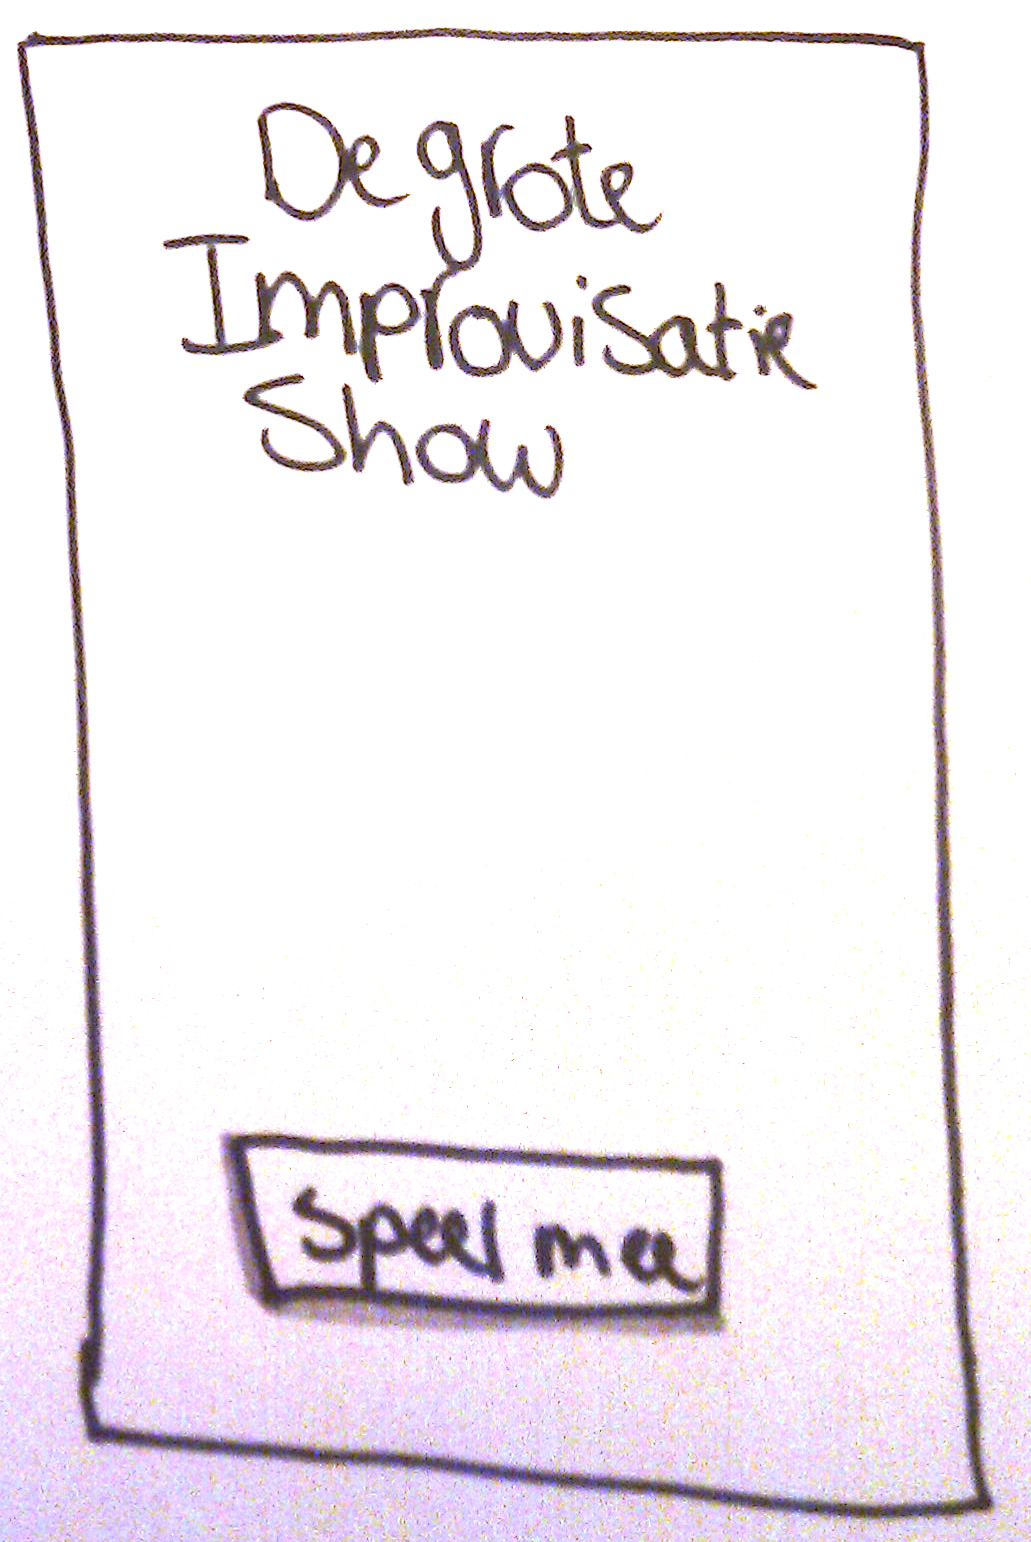 De grote
Improvisatie
Show
Speel mee